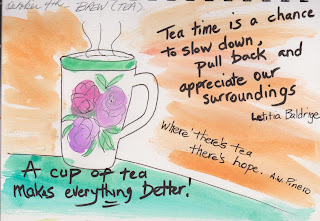 BREW (TEA)
Tea time is a chance
to slow down,
pull back and
appreciate our
surroundings
Letitia Baldrige
Where there's tea
there's hope. A.W. Pinero
A cup of tea
makes everything better!